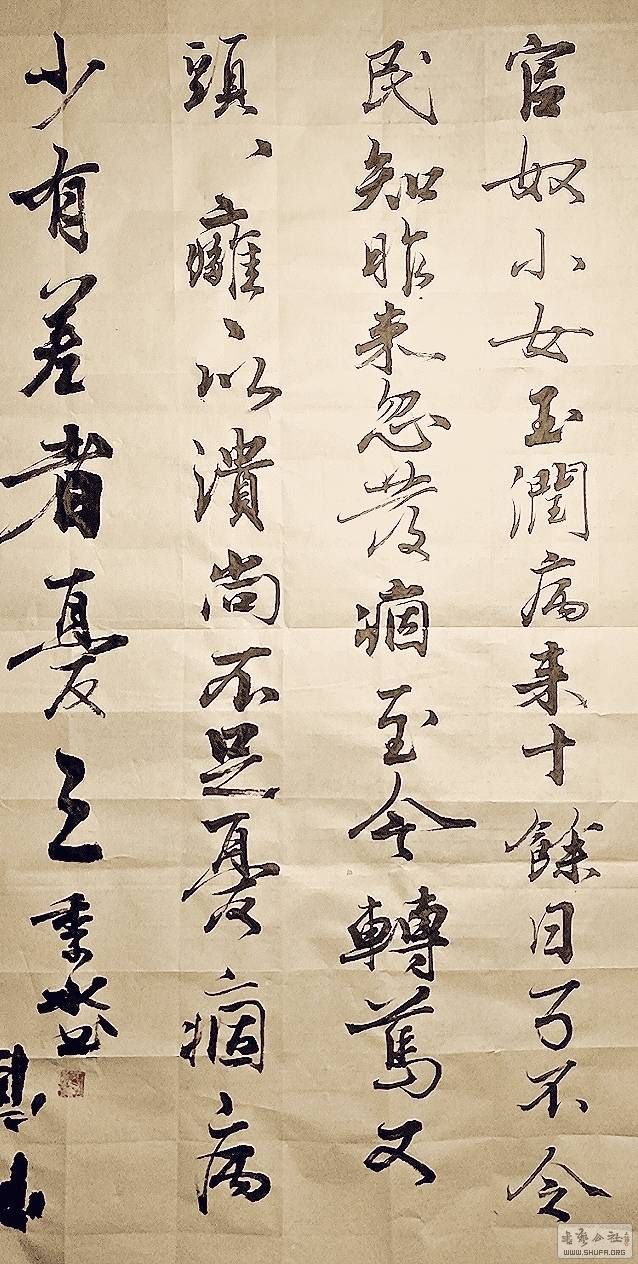 官奴小女玉潤病来十餘日了不令
民知昨来忽發痼至今轉篤又
頭、癰、以潰尚不足憂痼病
少有差者憂之
書藝公社
WWW.SHUFA.ORG